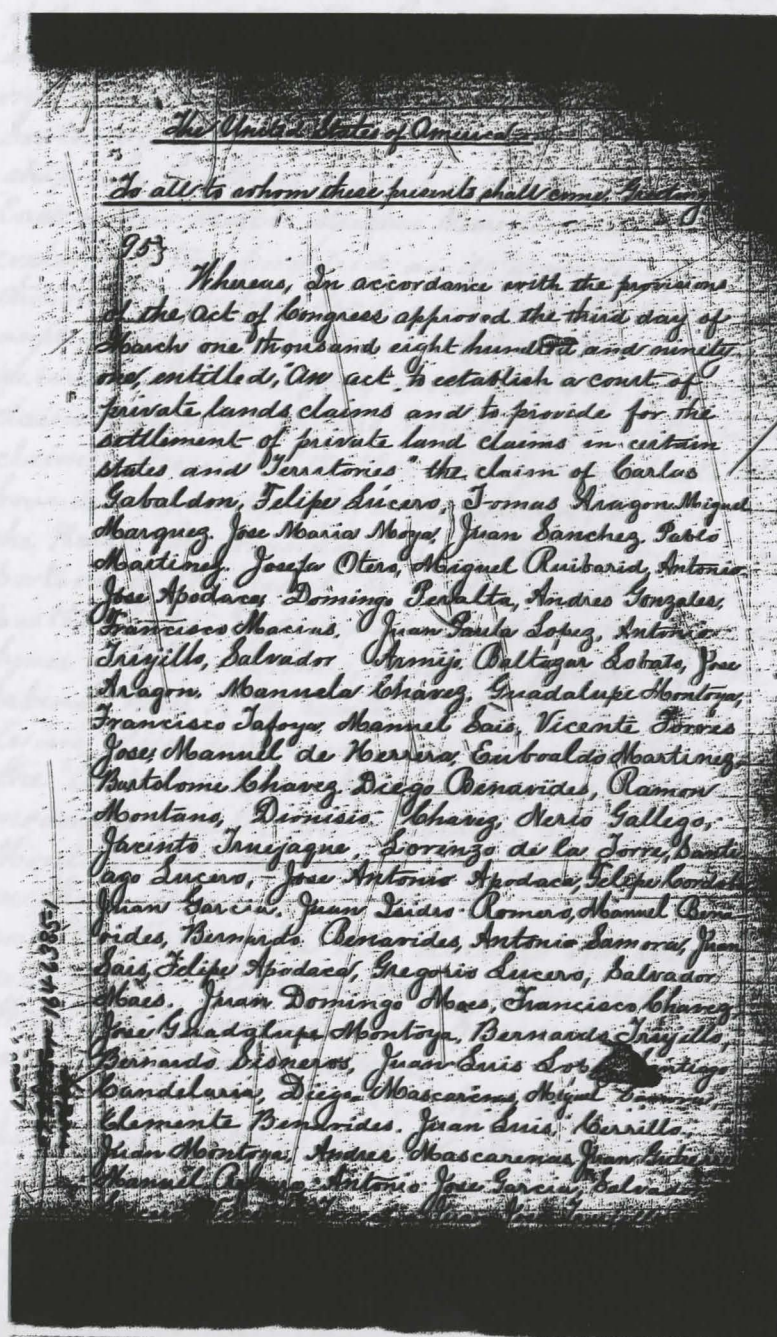 The United States of America
To all to whom these presents shall come, Greeting
95}
Whereas, In accordance with the provisions
of the Act of Congress approved the third day of
March one thousand eight hundred and ninety
one, entitled, "An act to establish a court of
private lands claims and to provide for the
settlement of private land claims in certain
states and Territories" the claim of Carlos
Gabaldon, Felipe Lucero, Tomas Aragon Miguel
Marquez. Jose Maria Moya, Juan Sanchez. Pablo
Martinez. Josefa Otero, Miguel Ruibarid, Antonio
Jose Apodaca, Domingo Peralta, Andres Gonzales,
Francisco Macias, Juan Paula Lopez, Antonio
Trejillo, Salvador Armijo, Baltazar Lobato, Jose
Aragon, Manuela Chavez, Guadalupe Montoya,
Francisco Tafoya, Manuel Sais, Vicente Torres
Jose, Manuel de Herrera, Euboaldo Martinez,
Bartolome Chavez Diego Benavides, Ramon
Montano, Dionisio Chavez, Nerio Gallego,
Jacinto Truejaque, Lorenzo de la Torre, Santi
ago Lucero, Jose Antonio Apodaca, Felipe
Juan Garcia, Juan Isidro Romero, Manuel Bena
vides, Bernardo Benavides, Antonio Samora, Juan
Sais, Felipe Apodaca, Gregorio Lucero, Salvador
Maes. Juan Domingo Maes, Francisco Chavez
Jose Guadalupe Montoya, Bernardo Trejillo,
Bernardo Sisneros, Juan Luis
Candelaria, Diego Mascarenas, Miguel
Clemente Benavides. Juan Luis Cerrillo.
Juan Montoya, Andres Mascarenas, Juan
Manuel Antonio Jose Garcia,
1642385-1